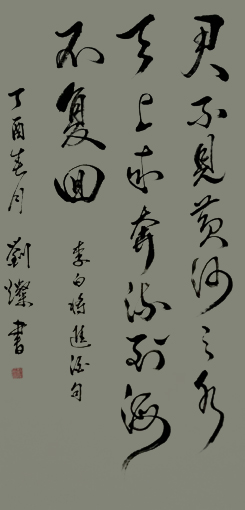 君不見黃河之水
天上來奔流到海
不复回
李白将進酒句
丁酉春月 劉燦書